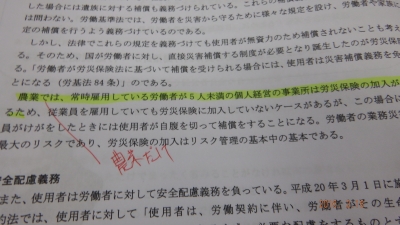 した場合には遺族に対する補償も義務づけられている。これらの補償
は問わない。労働基準法では、労働者を災害から守るために様々な規定を設け、労働者や家族に
定の補償を行うよう義務づけているのである。
しかし、法律でこれらの規定を義務づけても使用者が無資力のため補償されないことも考え
る。そのため、国が労働者に対し、直接災害補償する制度が必要となり誕生したのが労災保
「労働者が労災保険法に基づいて補償を受けられる場合には、使用者は災害補償義務を免
とになる（労基法84条）」のである。
農業では、常時雇用している労働者が5人未満の個人経営の事業所は労災保険の加入が
るため、従業員を雇用していても労災保険に加入していないケースがあるが、この場合に
員がけがをしたときには使用者が自腹を切って補償をすることになる。労働者の業務災
最大のリスクであり、労災保険の加入はリスク管理の基本中の基本である。
農業だけ
安全配慮義務
また、使用者は労働者に対して安全配慮義務を負っている。平成20年3月1日に施
約法では、使用者は「使用者は、労働契約に伴い、労働者がその生命